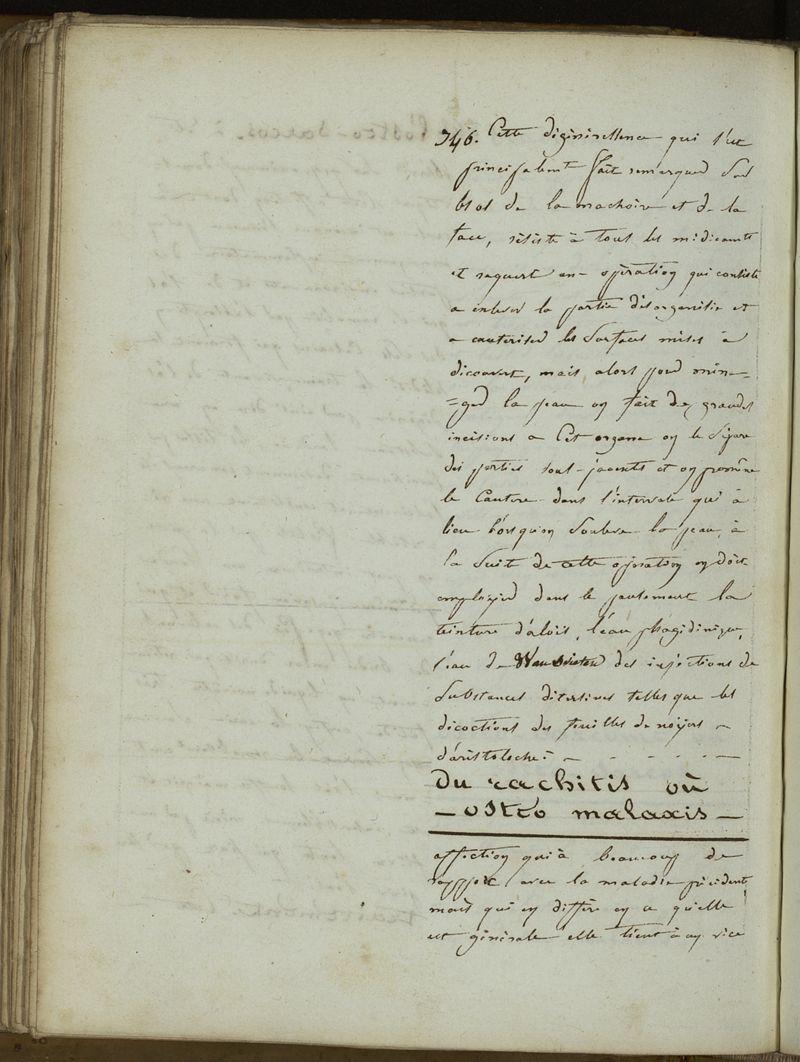 746. Cette dégénérescence qui s'est
principalemt fait remarquer sur
les os de la machoire et de la
face, résiste à tout les médicamts
et requert une opération qui consiste
a enlever la partie désorganisée et
a cautériser les surfaces mises à
découvert, mais alors pour ména=
=ger la peau on fait de grandes
incisions a cet organe on le sépare
des parties sous-jacents et on promène
le cautère dans l'intervale qui à
lieu lorsqu'on souleve la peau, à
la suite de cette opération on doit
employer dans le pansement la
teinture d'aloës, l'eau phagidinique,
l'eau de Wan Swieten des injections de
substances ditersives telles que les
dicoctions des feuilles de noyers -
d'aristoloche: -
Du rachitis où
- ostéo malaxis -
affection qui à beaucoup de
rapport avec la maladie précidente
mais qui en diffère en ce qu'elle
est générale elle tient à un vice